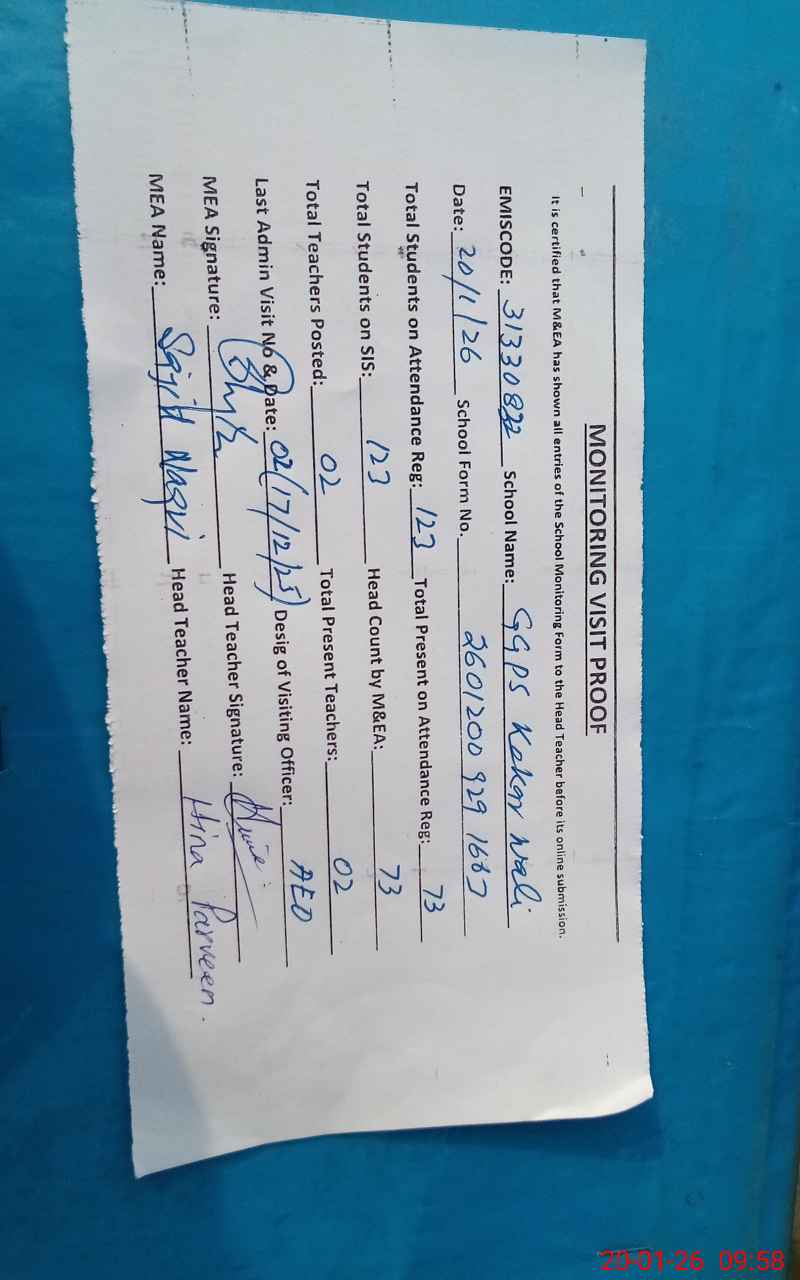 MONITORING VISIT PROOF
It is certified that M&EA has shown all entries of the School Monitoring Form to the Head Teacher before its online submission.
EMISCODE: 31330832 School Name: GGPS Kakar Wali
Date: 20/1/26 School Form No. 2601200929 1687
Total Students on Attendance Reg: 123 Total Present on Attendance Reg: 73
Total Students on SIS: 123 Head Count by M&EA: 73
Total Teachers Posted: 02 Total Present Teachers: 02
Last Admin Visit No & Date: 02 (17/12/25) Desig of Visiting Officer: AEO
MEA Signature: Head Teacher Signature:
MEA Name: Sajid Naqvi Head Teacher Name: Hina Parveen.
20-01-26 09:58